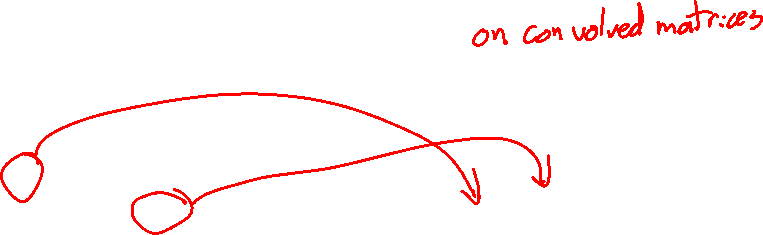 on convolved matrices